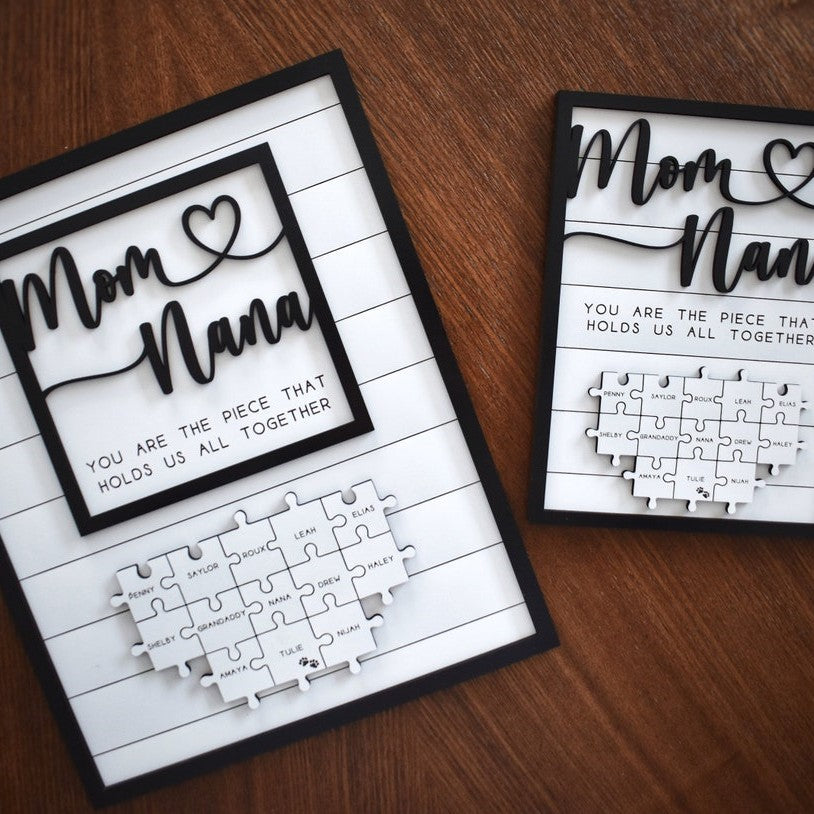 Mom
Nana
YOU ARE THE PIECE THAT
HOLDS US ALL TOGETHER
PENNY SAYLOR ROUX LEAH ELIAS
SHELBY GRANDADDY NANA DREW HALEY
AMAYA TULIE NIJAH
Mom
Nana
YOU ARE THE PIECE THAT
HOLDS US ALL TOGETHER
PENNY SAYLOR ROUX LEAH ELIAS
SHELBY GRANDADDY NANA DREW HALEY
AMAYA TULIE NIJAH